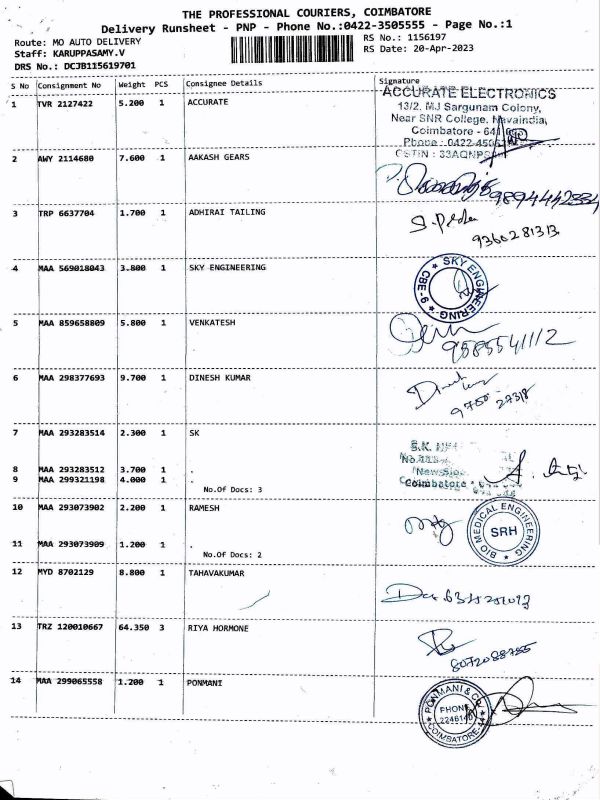 THE PROFESSIONAL COURIERS, COIMBATORE
Delivery Runsheet - PNP - Phone No.:0422-3505555 - Page No.:1
Route: MO AUTO DELIVERY
RS No.: 1156197
Staff: KARUPPASAMY.V
RS Date: 20-Apr-2023
DRS No.: DCJB115619701
S No Consignment No Weight PCS Consignee Details Signature
1 TVR 2127422 5.200 1 ACCURATE
ACCURATE ELECTRONICS
13/2, MJ Sargunam Colony,
Near SNR College, Navaindia,
Coimbatore - 641
Phone : 0422-450
GSTIN : 33AQNPS
2 AWY 2114680 7.600 1 AAKASH GEARS
3 TRP 6637704 1.700 1 ADHIRAI TAILING
9360281313
4 MAA 569018043 3.800 1 SKY ENGINEERING
SKY ENGINEERING
CBE-9
5 MAA 859658809 5.800 1 VENKATESH
9585541112
6 MAA 298377693 9.700 1 DINESH KUMAR
7 MAA 293283514 2.300 1 SK
S.K.
8 MAA 293283512 3.700 1 .
9 MAA 299321198 4.000 1 .
Coimbatore
No.Of Docs: 3
10 MAA 293073902 2.200 1 RAMESH
BIO MEDICAL ENGINEERING
SRH
11 MAA 293073909 1.200 1 .
No.Of Docs: 2
12 MYD 8702129 8.800 1 TAHAVAKUMAR
13 TRZ 120010667 64.350 3 RIYA HORMONE
8072088755
14 MAA 299065558 1.200 1 PONMANI
PONMANI & CO
PHONE
COIMBATORE